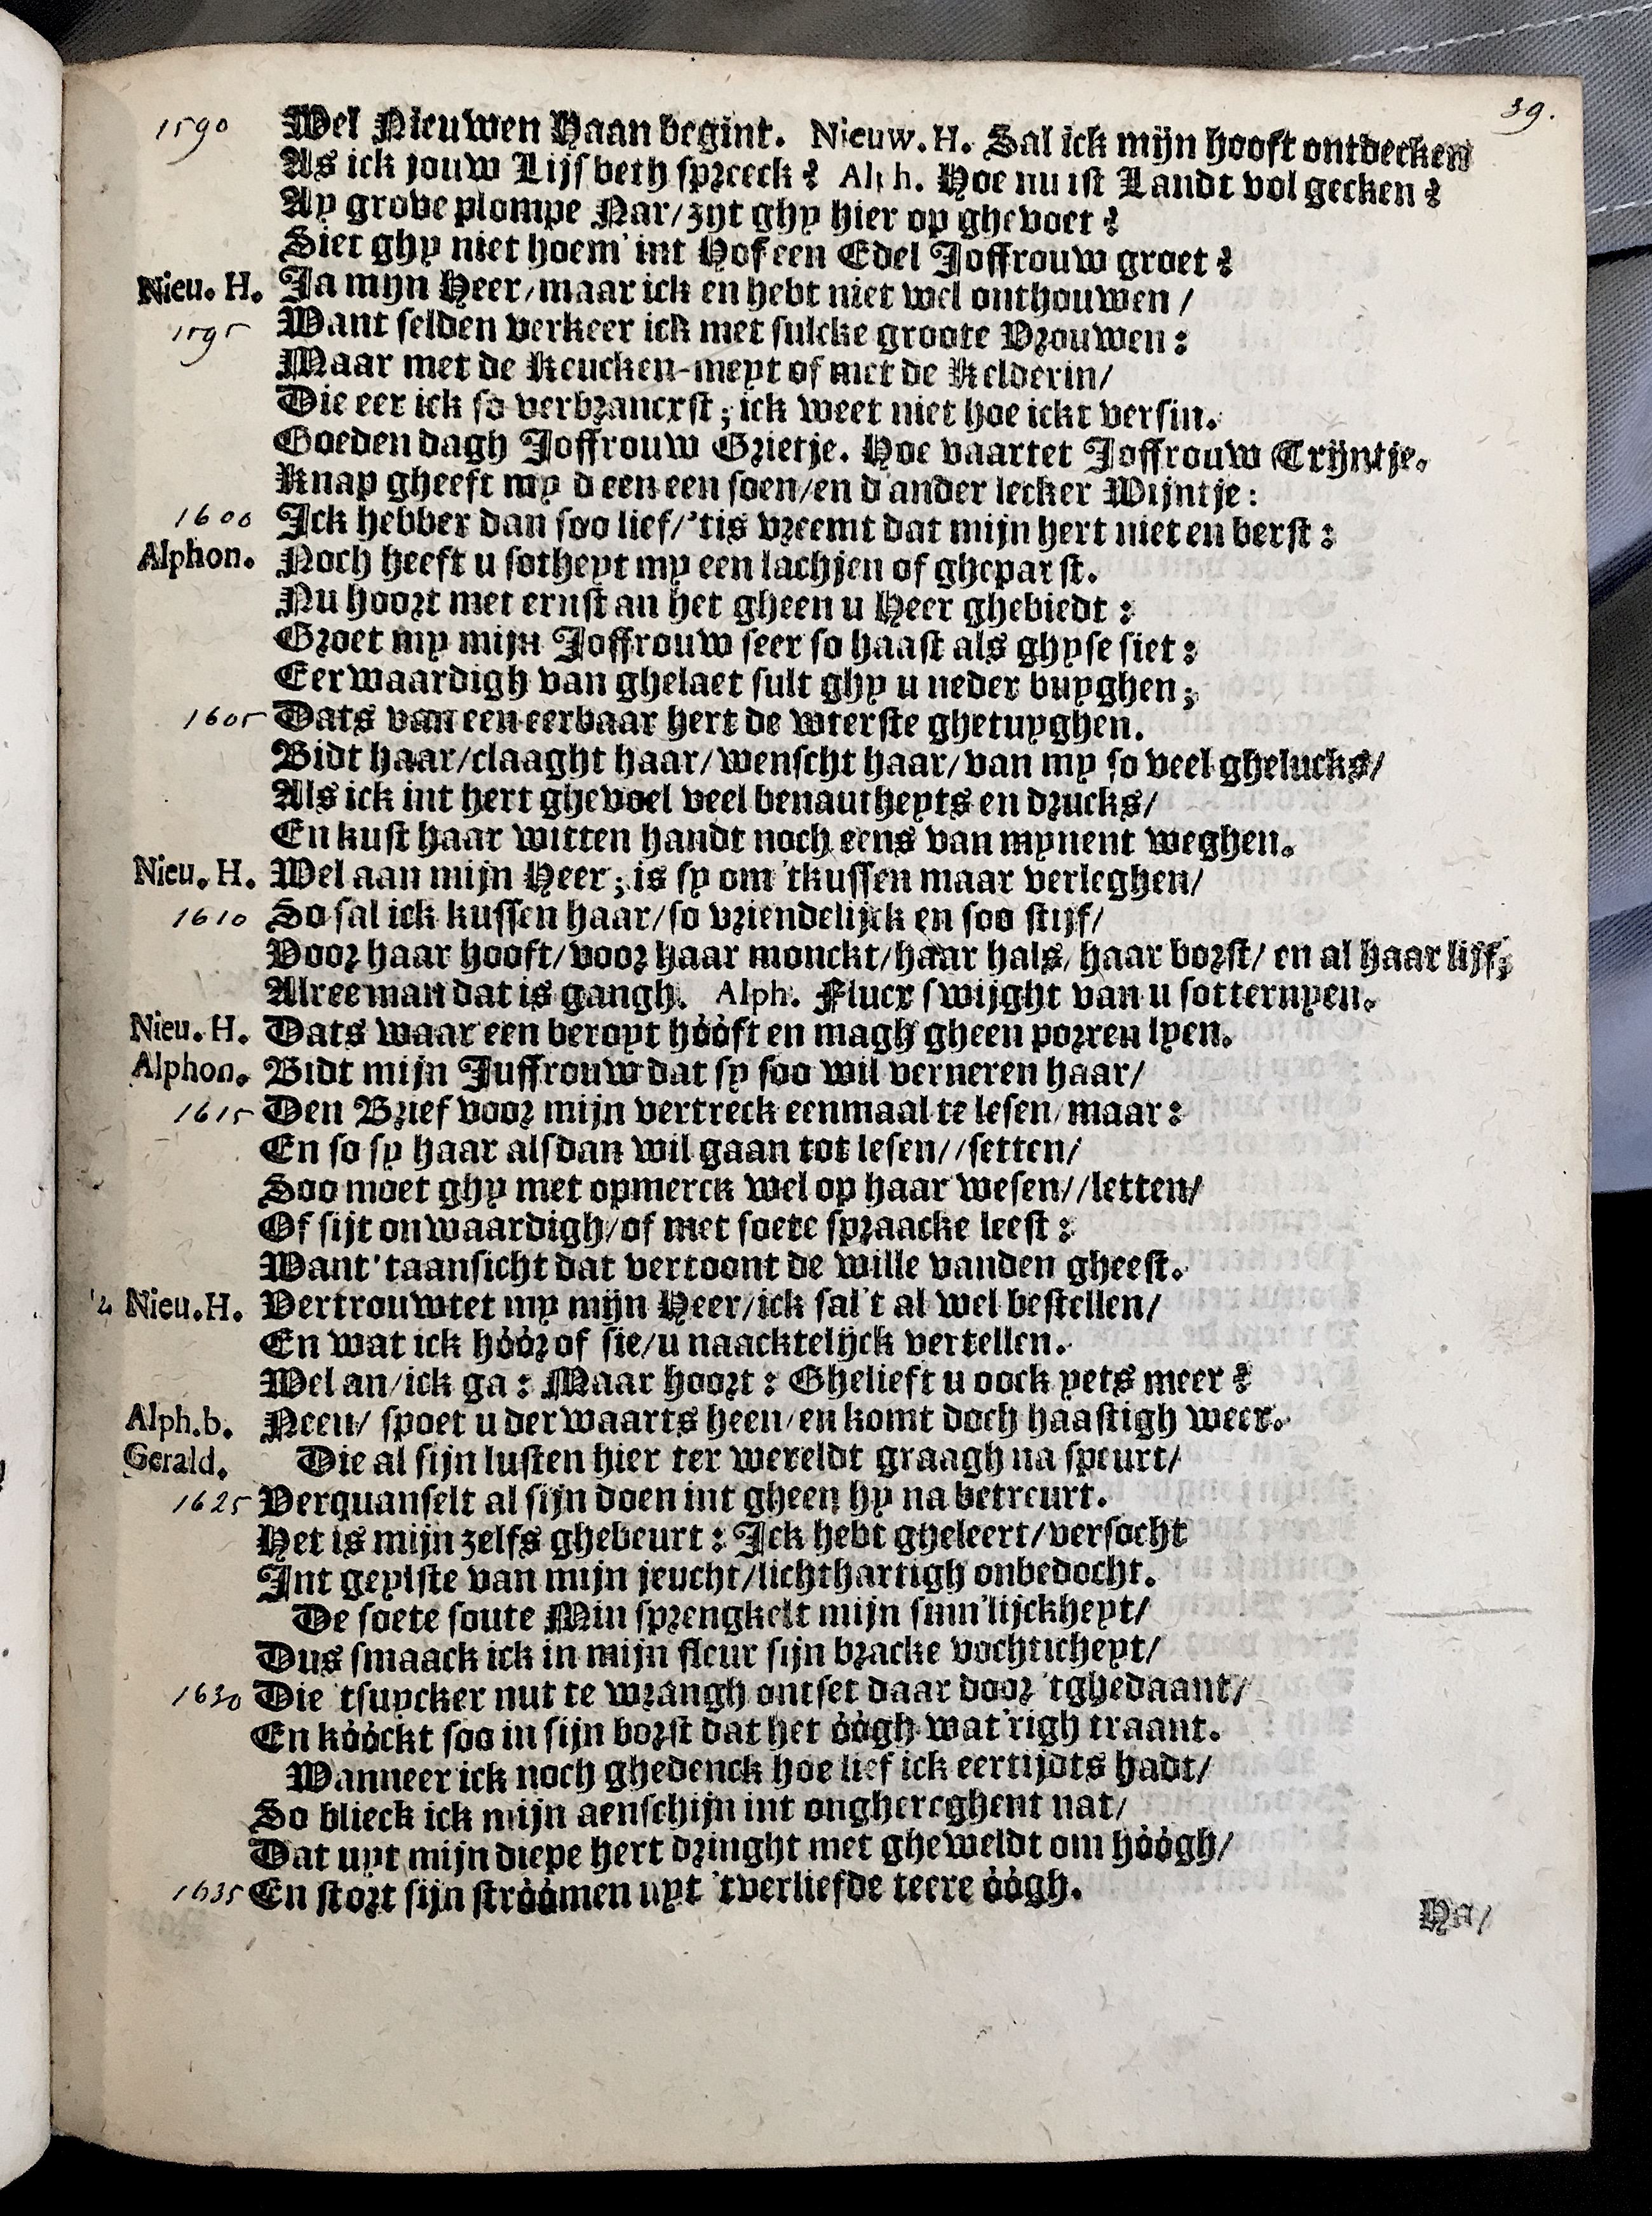 39.
1590 Wel Nieuwen Haan begint. Nieuw. H. Sal ick mijn hooft ontdecken
As ick jouw Lijsbeth spreeck? Alph. Hoe nu ist Landt vol gecken?
Ay grove plompe Nar/zyt ghy hier op ghevoet?
Siet ghy niet hoem' int Hof een Edel Joffrouw groet?
Nieu. H. Ja myn Heer/maar ick en hebt niet wel onthouwen/
1595 Want selden verkeer ick met sulcke groote Vrouwen:
Maar met de Keucken-meyt of met de Kelderin/
Die eer ick so verbrancxst; ick weet niet hoe ickt versin.
Goeden dagh Joffrouw Grietje. Hoe vaartet Joffrouw Trijntje.
Knap gheeft my d'een een soen/en d'ander lecker Wijntje:
1600 Ick hebber dan soo lief/'tis vreemt dat mijn hert niet en berst:
Alphon. Noch heeft u sotheyt my een lachjen of gheparst.
Nu hoort met ernst an het gheen u Heer ghebiedt:
Groet my mijn Joffrouw seer so haast als ghyse siet:
Eerwaardigh van ghelaet sult ghy u neder buyghen;
1605 Dats van een eerbaar hert de wterste ghetuyghen.
Bidt haar/claaght haar/wenscht haar/van my so veel ghelucks/
Als ick int hert ghevoel veel benautheyts en drucks/
En kust haar witten handt noch eens van mynent weghen.
Nieu. H. Wel aan mijn Heer; is sy om 'tkussen maar verleghen/
1610 So sal ick kussen haar/so vriendelijck en soo stijf/
Voor haar hooft/voor haar monckt/haar hals/haar borst/en al haar lijf;
Alree man dat is gangh. Alph. Flucx swijght van u sotternyen.
Nieu. H. Dats waar een beroyt hóóft en magh gheen porren lyen.
Alphon. Bidt mijn Juffrouw dat sy soo wil verneren haar/
1615 Den Brief voor mijn vertreck eenmaal te lesen/maar:
En so sy haar alsdan wil gaan tot lesen//setten/
Soo moet ghy met opmerck wel op haar wesen//letten/
Of sijt onwaardigh/of met soete spraacke leest:
Want 'taansicht dat vertoont de wille vanden gheest.
Nieu. H. Vertrouwtet my mijn Heer/ick sal't al wel bestellen/
En wat ick hóór of sie/u naacktelijck vertellen.
Wel an/ick ga: Maar hoort: Ghelieft u oock yets meer?
Alph.b. Neen/ spoet u derwaarts heen/en komt doch haastigh weer.
Gerald. Die al sijn lusten hier ter wereldt graagh na speurt/
1625 Verquanselt al sijn doen int gheen hy na betreurt.
Het is mijn zelfs ghebeurt: Ick hebt gheleert/versocht
Int geylste van mijn jeucht/lichthartigh onbedocht.
De soete soute Min sprengkelt mijn sinn'lijckheyt/
Dus smaack ick in mijn fleur sijn bracke vochticheyt/
1630 Die 'tsuycker nut te wrangh ontset daar door 'tghedaant/
En kóóckt soo in sijn borst dat het óógh wat'righ traant.
Wanneer ick noch ghedenck hoe lief ick eertijdts hadt/
So blieck ick mijn aenschijn int onghereghent nat/
Dat uyt mijn diepe hert dringht met gheweldt om hóógh/
1635 En stort sijn stróómen uyt 'tverliefde teere óógh.
Ha/